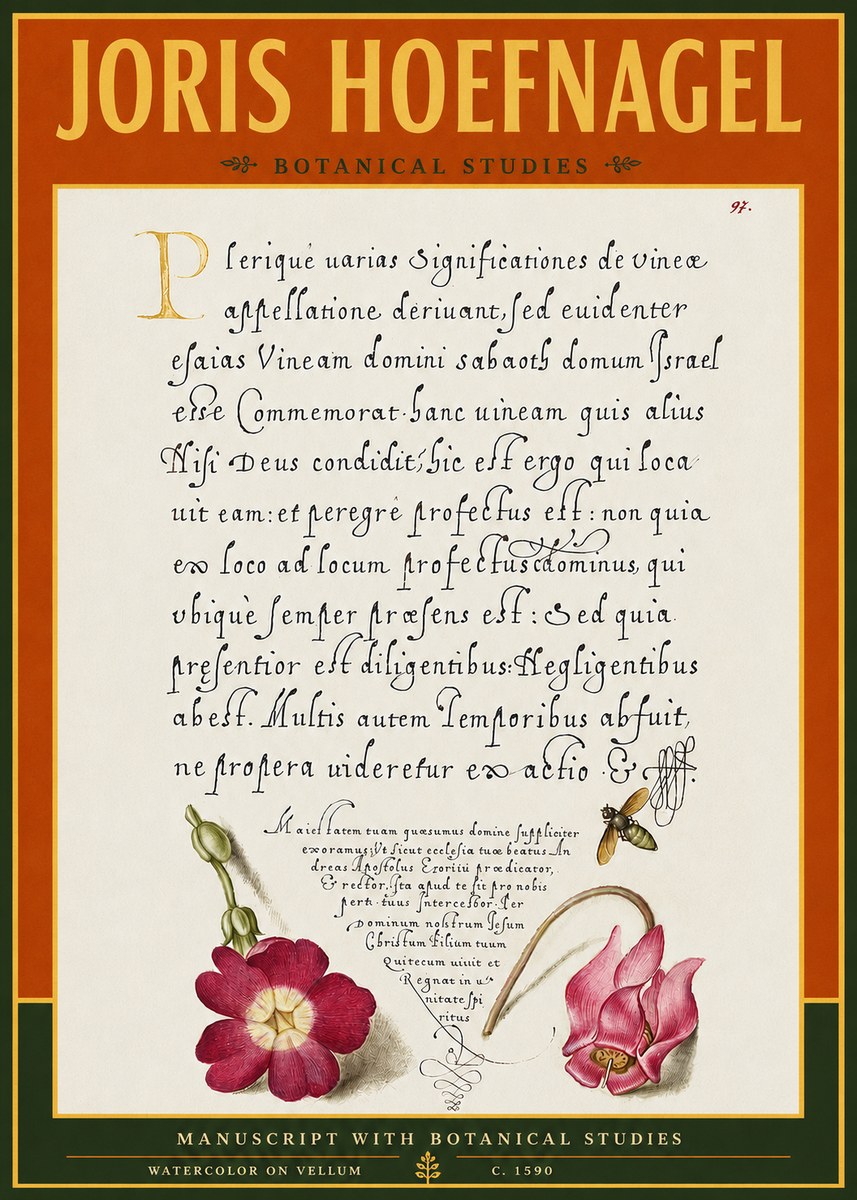 JORIS HOEFNAGEL
BOTANICAL STUDIES
97.
Plerique uarias Significationes de vineæ
appellatione deriuant, sed euidenter
esaias Vineam domini sabaoth domum Israel
esse Commemorat. hanc uineam quis alius
Nisi Deus condidit, hic est ergo qui loca
uit eam: et peregrè profectus est: non quia
ex loco ad locum profectus dominus, qui
vbiquè semper præsens est: Sed quia
pręsentior est diligentibus: Negligentibus
abest. Multis autem Temporibus abfuit,
ne propera uideretur exactio. &
Maiestatem tuam quæsumus domine suppliciter
exoramus; Vt sicut ecclesia tuæ beatus An
dreas Apostolus Exoritii prædicator,
& rector. Ita apud te sit pro nobis
pert. tuus Intercessor. Per
Dominum nostrum Jesum
Christum Filium tuum
Qui tecum uiuit et
Regnat in u
nitate spi
ritus
MANUSCRIPT WITH BOTANICAL STUDIES
WATERCOLOR ON VELLUM
C. 1590